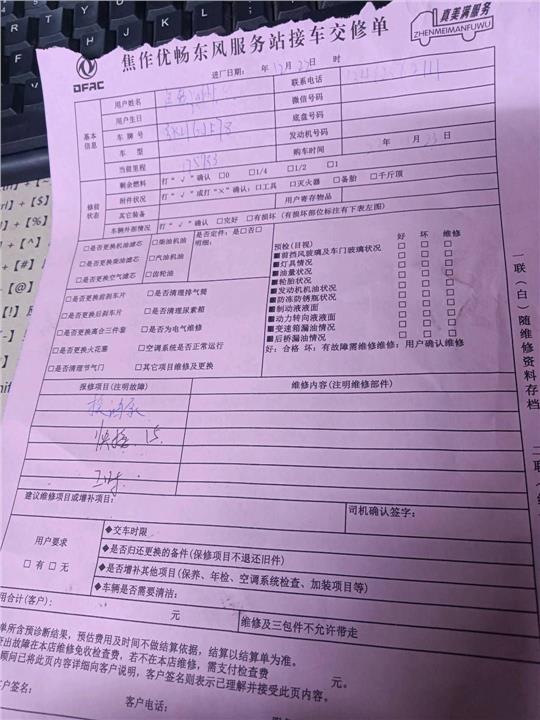 焦作优畅东风服务站接车交修单
DFAC
真美满服务
ZHENMEIMANFUWU
进厂日期： 年 12月 23日 时
基本信息
用户姓名
联系电话
用户生日
微信号码
车牌号
底盘号码
车 型
发动机号码
当前里程
购车时间 年 月 23日
修前状态
剩余燃料 打“√”确认 □0 □1/4 □1/2 □1
附件状况 打“√”或打“×”确认：□工具 □灭火器 □备胎 □千斤顶
其它装备
用户寄存物品
车辆外部情况 打“√”确认 □完好 □有损坏（有损坏部位标注有下表左图）
□是否更换机油滤芯 □柴油机油
□是否更换柴油滤芯 □汽油机油
□是否更换空气滤芯 □齿轮油
是否定件：是□否□
明细：
□是否更换前刹车片 □是否清理排气筒
□是否更换后刹车片 □是否清理尿素箱
□是否更换离合三件套 □是否为电气维修
□是否更换火花塞 □空调系统是否正常运行
□是否清理节气门 □其它项目维修及更换
预检(目视) 好 坏 维修
■前挡风玻璃及车门玻璃状况 □ □ □
■灯具情况 □ □ □
■油量状况 □ □ □
■轮胎状况 □ □ □
■发动机机油状况 □ □ □
■防冻防锈瓶状况 □ □ □
■制动液液面 □ □ □
■动力转向液液面 □ □ □
■变速箱漏油情况 □ □ □
■后桥漏油情况 □ □ □
好：合格 坏：有故障需维修维修：用户确认维修
报修项目(注明故障)
维修内容(注明维修部件)
15
工时
建议维修项目或增补项目：
司机确认签字：
用户要求
□ 有 □ 无
◆交车时限
◆是否归还更换的备件(保修项目不退还旧件)
◆是否增补其他项目(保养、年检、空调系统检查、加装项目等)
◆车辆是否需要清洁：
用合计(客户)： 元
维修及三包件不允许带走
单所含预诊断结果，预估费用及时间不做结算依据，结算以结算单为准。
证出故障在本店维修免收检查费，若不在本店维修，需支付检查费 元。
顾问已将此页内容详细向客户说明，客户签名则表示已理解并接受此页内容。
客户签名：
客户电话：
一联（白）随维修资料存档